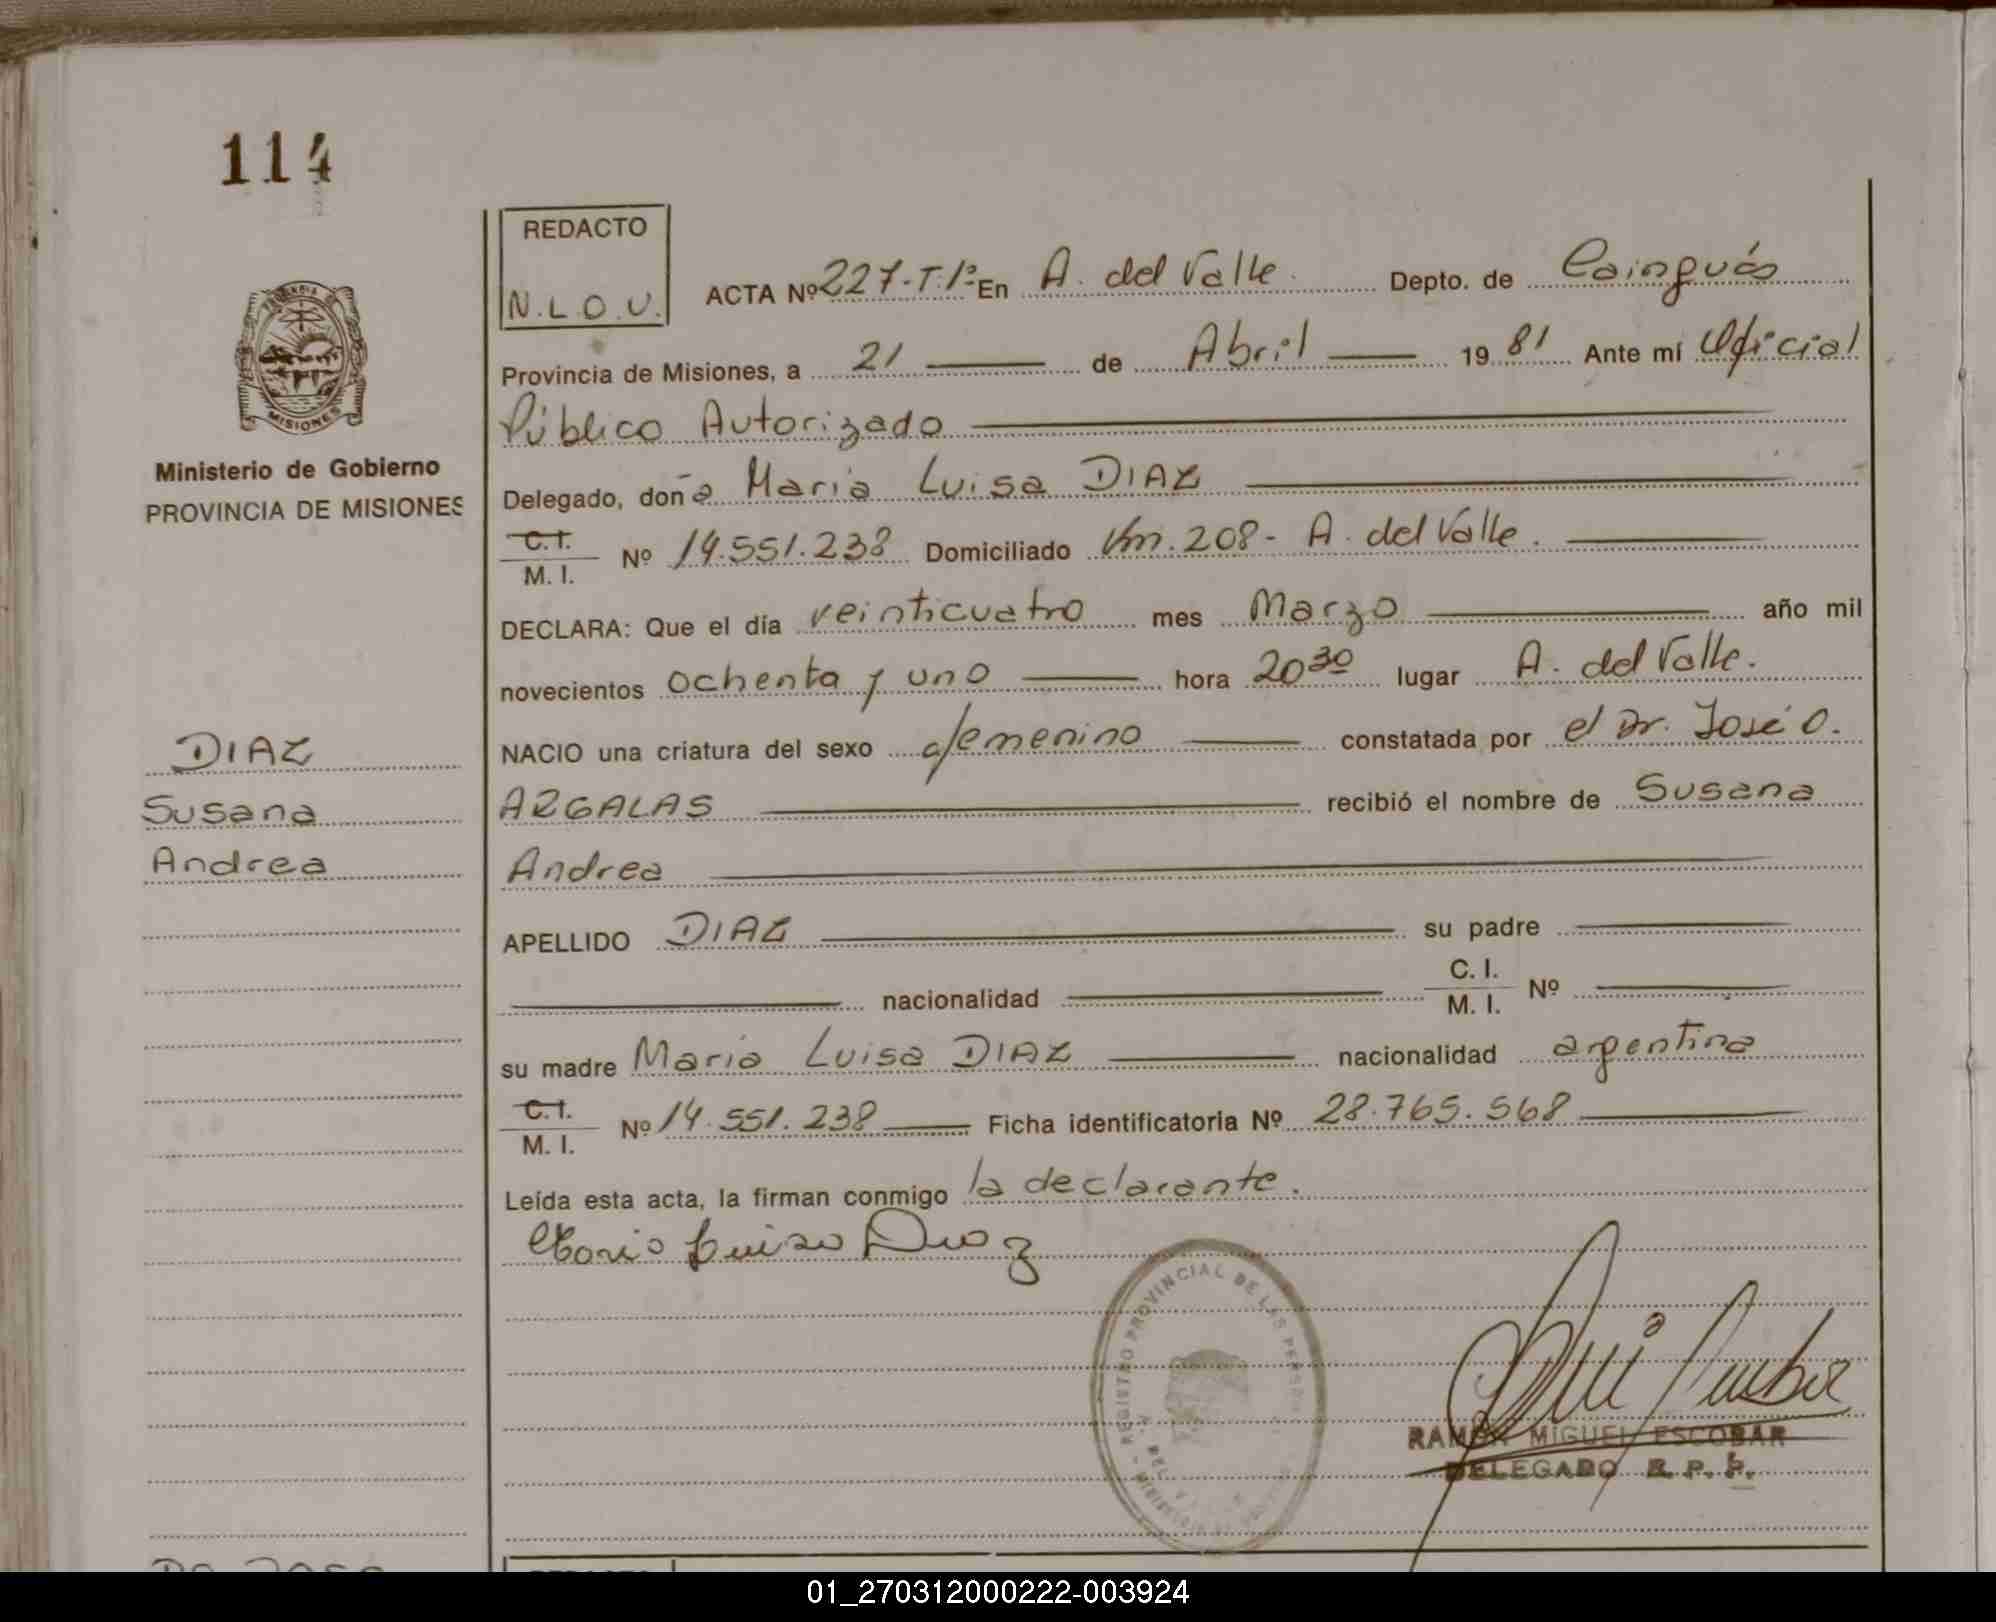 114
REDACTO
N.L.O.U.
ACTA Nº 227-T.1º- En A. del Valle. Depto. de Cainguás
Provincia de Misiones, a 21 de Abril 1981 Ante mí Oficial
Público Autorizado
MISIONES
Ministerio de Gobierno
PROVINCIA DE MISIONES
Delegado, doña Maria Luisa DIAZ
C.I.
M. I. Nº 14.551.238 Domiciliado Km. 208- A. del Valle.
DECLARA: Que el día veinticuatro mes Marzo año mil
novecientos ochenta y uno hora 20 30 lugar A. del Valle.
DIAZ
Susana
Andrea
NACIO una criatura del sexo femenino constatada por el Dr. José O.
ARGALAS recibió el nombre de Susana
Andrea
APELLIDO DIAZ su padre
nacionalidad C. I.
M. I. Nº
su madre Maria Luisa DIAZ nacionalidad argentina
C.I.
M. I. Nº 14.551.238 Ficha identificatoria Nº 28.765.568
Leída esta acta, la firman conmigo la declarante.
Maria Luisa Diaz
REGISTRO PROVINCIAL DE LAS PERSONAS
RAMON MIGUEL ESCOBAR
DELEGADO R. P. P.
01_270312000222-003924